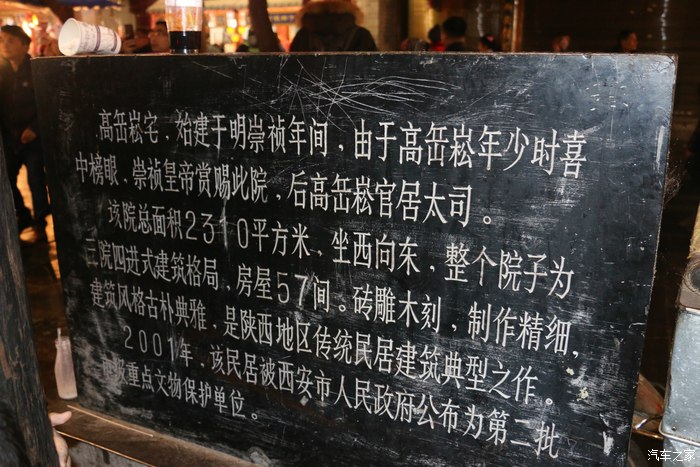 高岳崧宅，始建于明崇祯年间，由于高岳崧年少时喜
中榜眼、崇祯皇帝赏赐此院，后高岳崧官居太司。
该院总面积2310平方米，坐西向东，整个院子为
三院四进式建筑格局，房屋57间。砖雕木刻，制作精细，
建筑风格古朴典雅，是陕西地区传统民居建筑典型之作。
2001年，该民居被西安市人民政府公布为第二批
级重点文物保护单位。
汽车之家